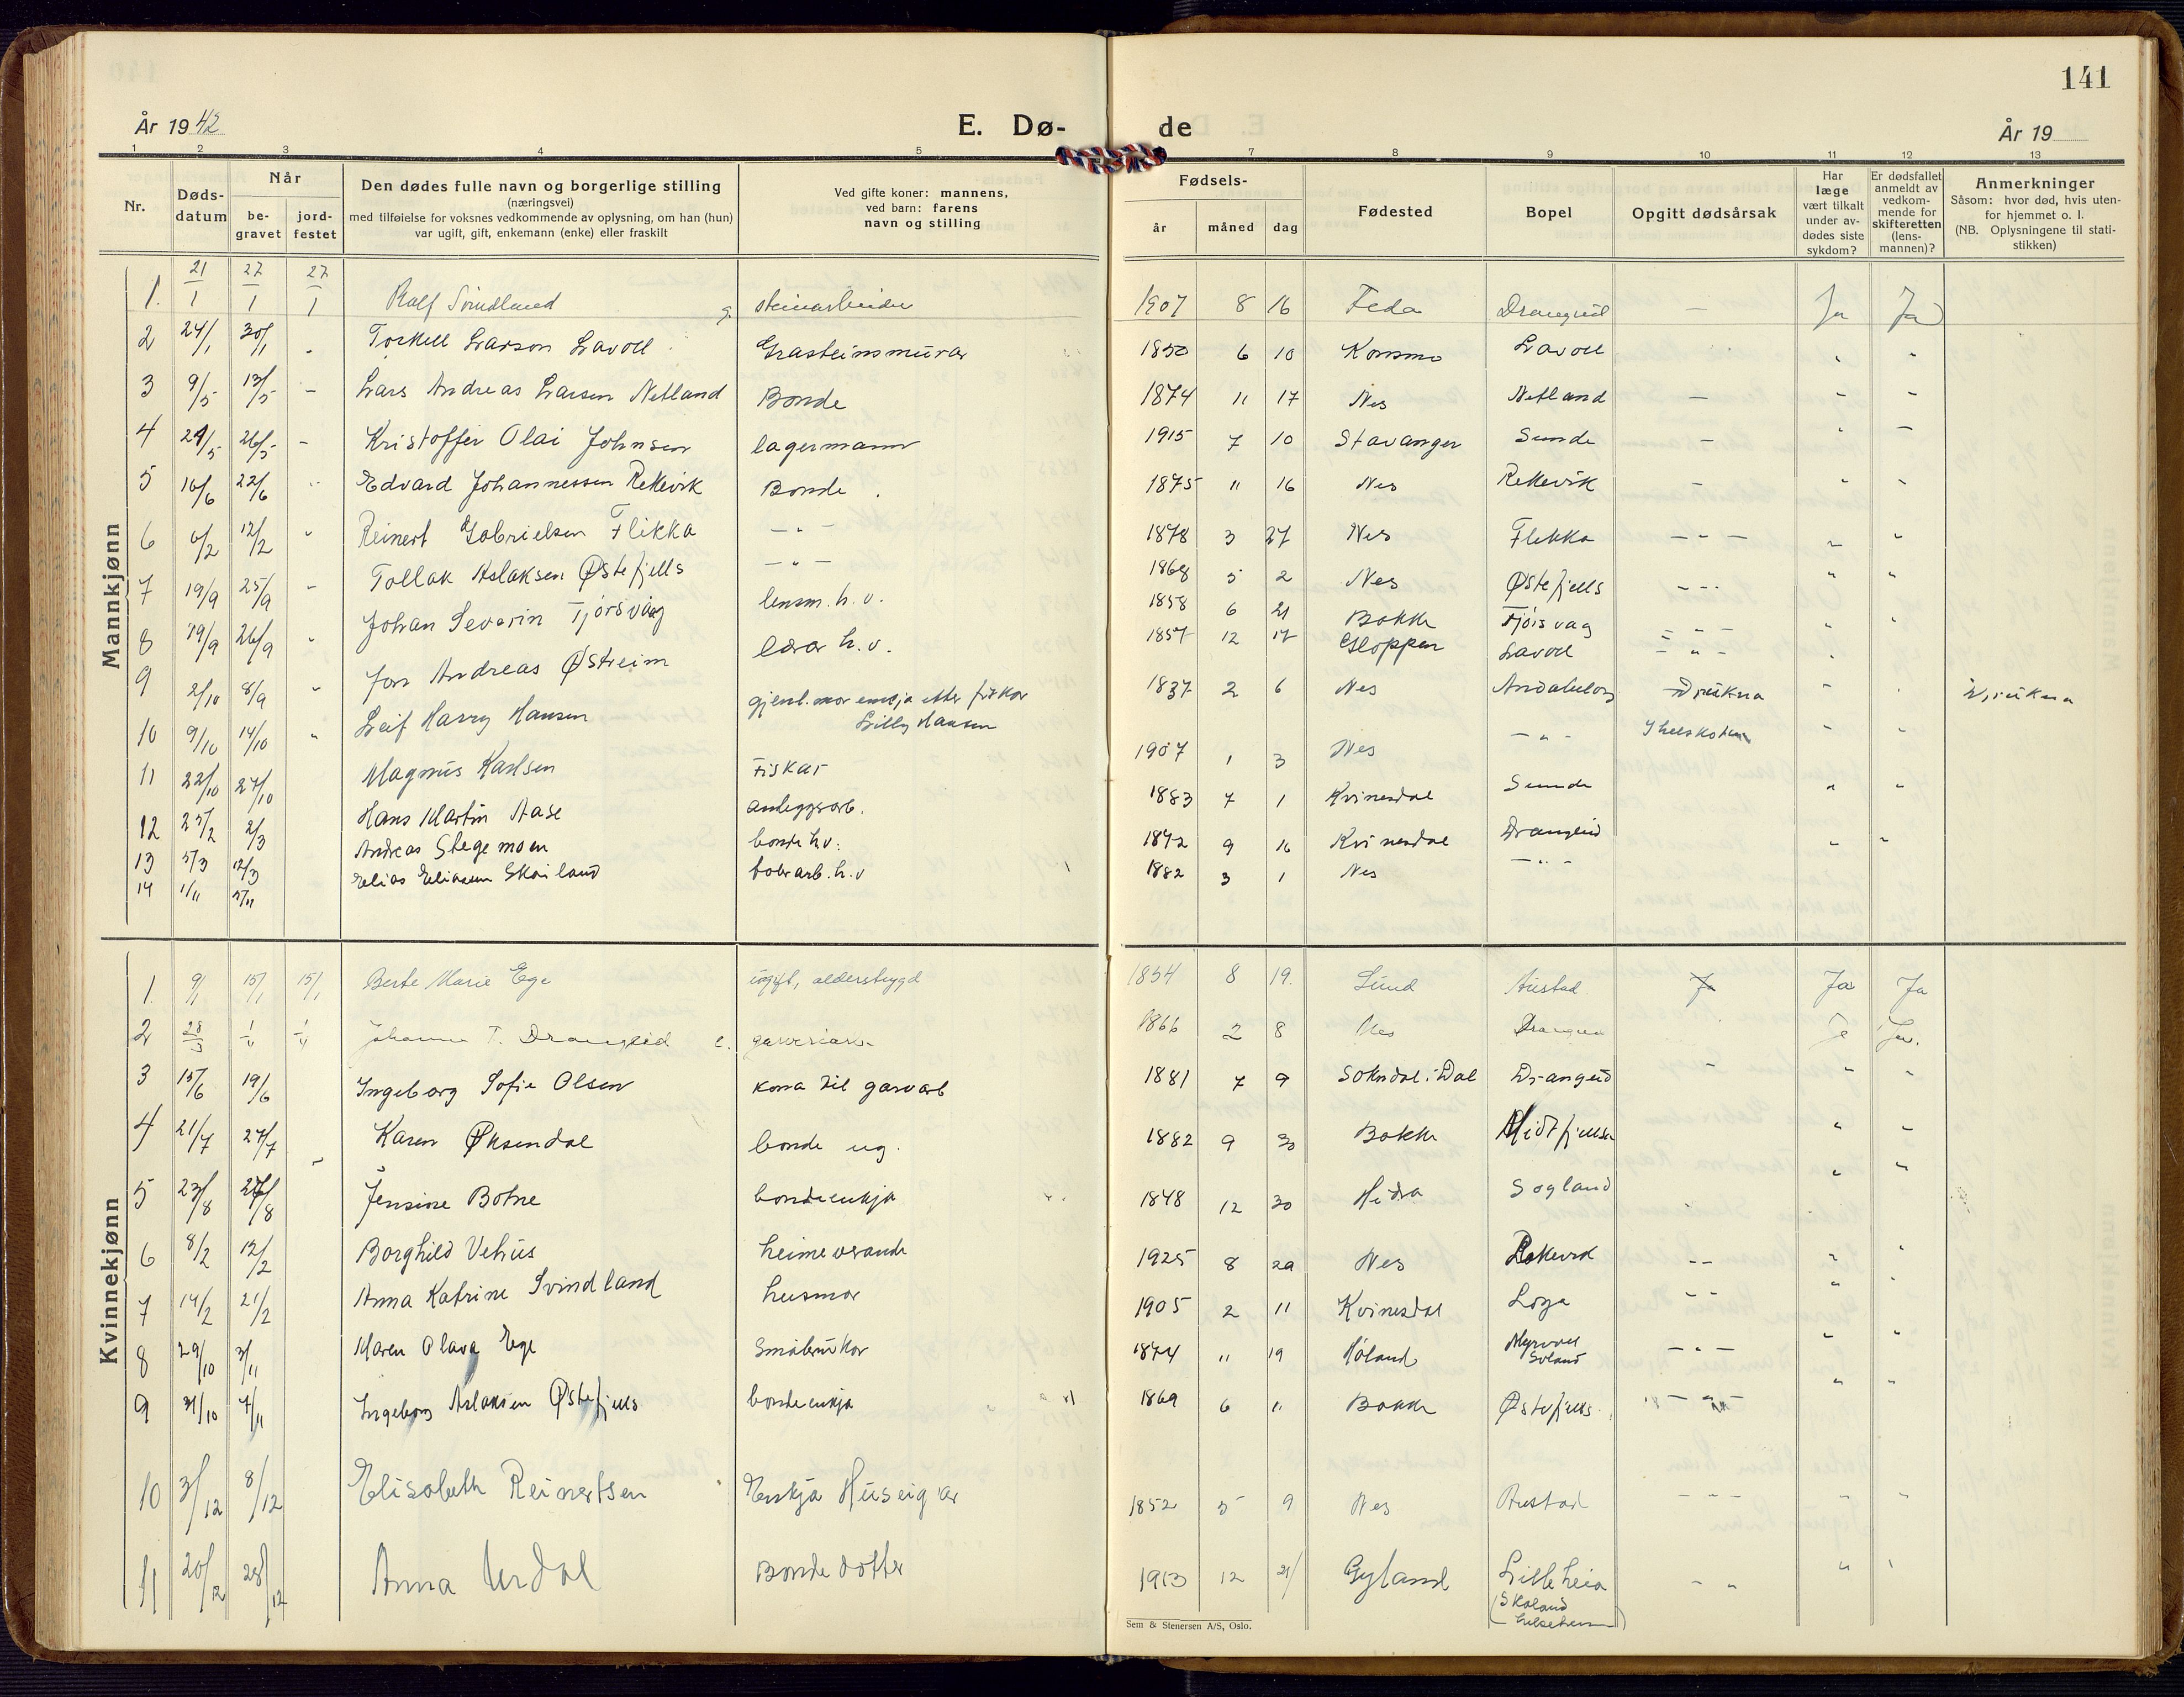 141
År 1942
E. Dø-
de
År 19
1 2 3 4 5 7 8 9 10 11 12 13
Nr.
Døds-
datum
Når
be-
gravet
jord-
festet
Den dødes fulle navn og borgerlige stilling
(næringsvei)
med tilføielse for voksnes vedkommende av oplysning, om han (hun)
var ugift, gift, enkemann (enke) eller fraskilt
Ved gifte koner: mannens,
ved barn: farens
navn og stilling
Fødsels-
år måned dag
Fødested
Bopel
Opgitt dødsårsak
Har
læge
vært tilkalt
under av-
dødes siste
sykdom?
Er dødsfallet
anmeldt av
vedkom-
mende for
skifteretten
(lens-
mannen)?
Anmerkninger
Såsom: hvor død, hvis uten-
for hjemmet o. l.
(NB. Oplysningene til stati-
stikken)
Mannkjønn
1. 21/1 27/1 27/1 Rolf Svindland g. steinarbeider 1907 8 16 Feda Drangeid — Ja Ja
2 24/1 30/1 " Torkell Larson Lavoll Grasteinsmurar 1850 6 10 Konsmo Lavoll " "
3 9/5 13/5 – Lars Andreas Larsen Netland Bonde 1874 11 17 Nes Netland — " –
4 24/5 26/5 – Kristoffer Olai Johnsen lagermann 1915 7 10 Stavanger Sunde – " –
5 16/6 22/6 " Edvard Johannessen Rekevik Bonde 1875 11 16 Nes Rekevik – " "
6 6/2 12/2 " Reinert Gabrielsen Flikka — " — 1878 3 27 Nes Flikka — " — " "
7 19/9 25/9 – Tollak Aslaksen Østefjells — " — 1868 5 2 Nes Østefjells – - - " "
8 19/9 26/9 " Johan Severin Tjørsvåg lensm. h. v. 1858 6 21 Bakke Tjørsvag – " – " "
9 2/10 8/9 " Jon Andreas Østreim lærar h. v. 1857 12 17 Gloppen Lavoll – " – "
10 9/10 14/10 " Leif Harry Hansen gjenl. mor enkja etter fiskar
Lilly Hansen 1837 2 6 Nes Andabeløy Drukna – " Drukna
11 22/10 27/10 Magnus Karlsen Fiskar 1907 1 3 Nes – " – " "
12 25/2 2/3 Hans Martin Aase anleggsarb. 1883 7 1 Kvinesdal Sunde " "
13 5/3 12/3 Andreas Stegemoen bonde h.v. 1872 9 16 Kvinesdal Drangeid " "
14 1/11 5/11 Elias Eliassen Skoiland h.v 1882 3 1 Nes – " –
Kvinnekjønn
1. 9/1 15/1 15/1 Berte Marie Ege ugift, alderstrygd 1854 8 19. Lund Austad Ja Ja
2 28/3 Johanne T. Drangeid e. 1866 2 8 Nes Drangeid Ja Ja.
3 15/6 19/6 Ingeborg Sofie Olsen kona til garvarb 1881 7 9 Sokndal i Dal Drangeid – " "
4 21/7 27/7 Karen Øksendal bonde ug. 1882 9 30 Bakke Midtfjellså " –
5 23/8 28/8 Jensine Botne bondeenkja 1848 12 30 Hidra Sogland " "
6 8/2 12/2 Borghild Vetrus heimeverande 1925 8 29 Nes Rekevik – – " "
7 14/2 21/2 Anna Katrine Svindland husmor 1905 2 11 Kvinesdal Loga – – " "
8 29/10 3/11 Maren Olava Ege Småbrukar 1874 11 19 Høland Myrvoll
Søland – " – " "
9 31/10 7/11 Ingeborg Aslaksen Østefjells bondeenkja 1869 6 11 Bakke Østefjells – " – " "
10 3/12 8/12 Elisabeth Reinertsen Enkja Huseigar 1852 5 9 Nes Austad – – – " "
11 20/12 28/12 Anna Urdal Bonde dotter 1913 12 21 Gyland Lilleheia
(Skoland
helseheim) – " " "
Sem & Stenersen A/S, Oslo.